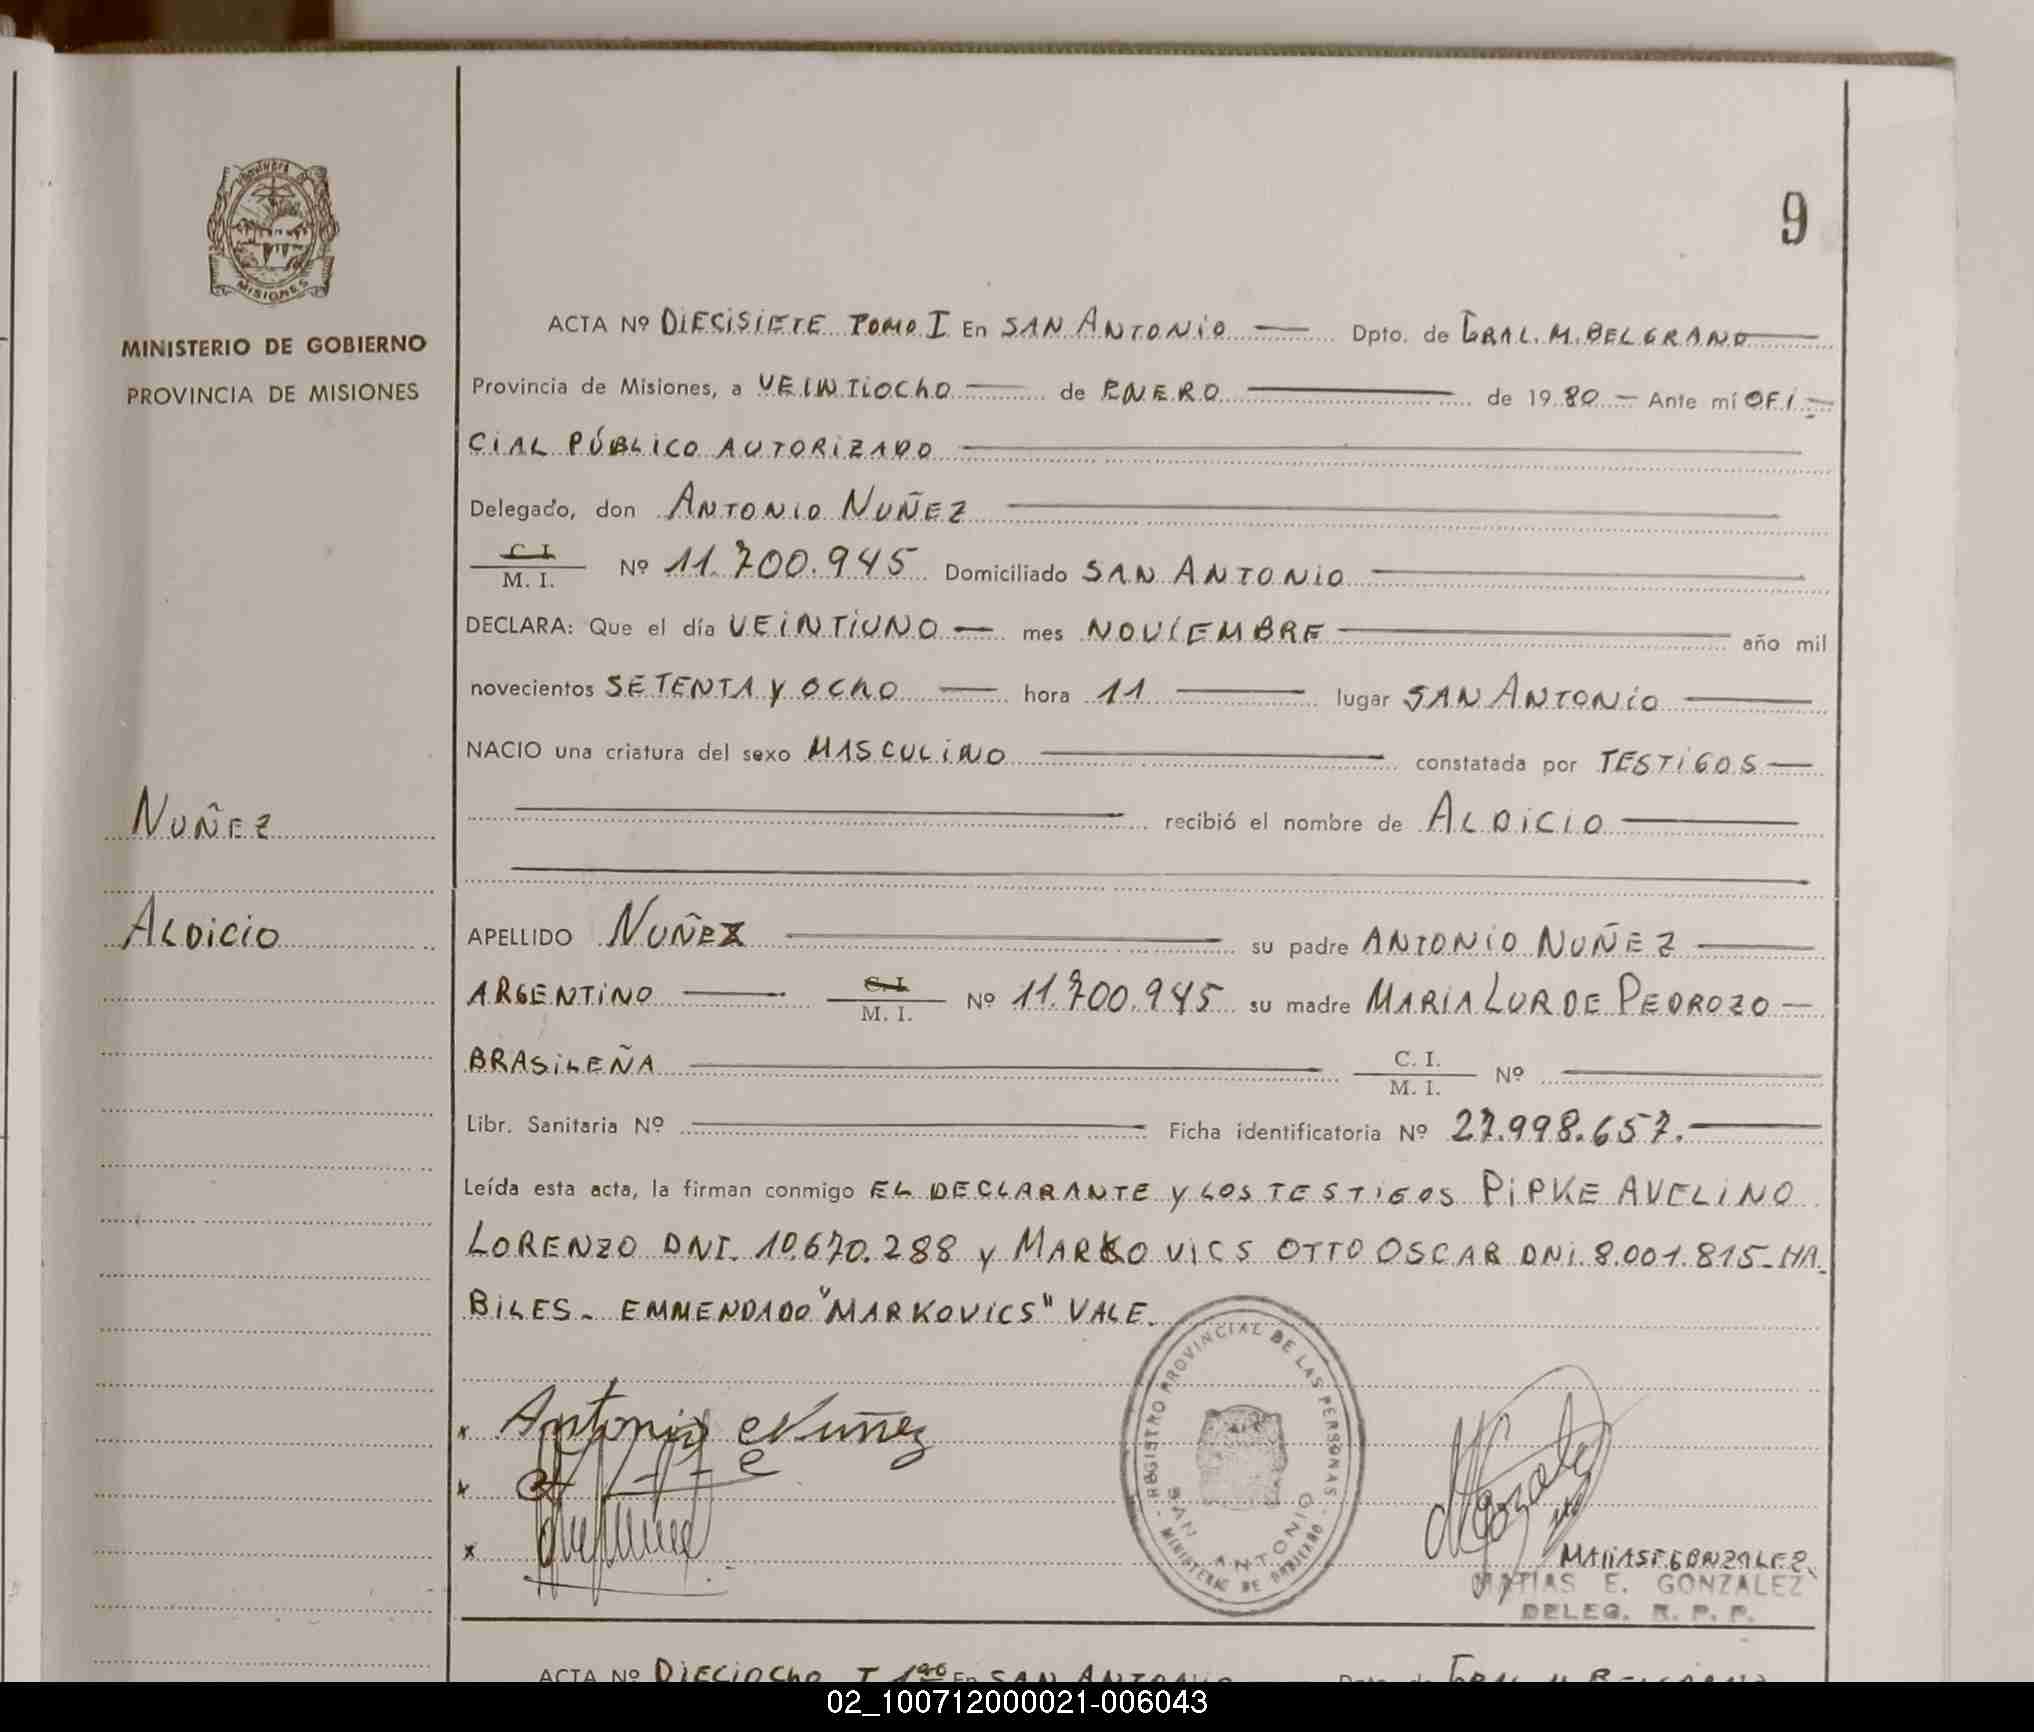 9
MISIONES
MINISTERIO DE GOBIERNO
PROVINCIA DE MISIONES
ACTA Nº DIECISIETE TOMO I En SAN ANTONIO Dpto. de GRAL. M. BELGRANO
Provincia de Misiones, a VEINTIOCHO de ENERO de 1980 — Ante mí OFI-
CIAL PÚBLICO AUTORIZADO
Delegado, don ANTONIO NUÑEZ
C. I.
M. I. Nº 11.700.945 Domiciliado SAN ANTONIO
DECLARA: Que el día VEINTIUNO — mes NOVIEMBRE año mil
novecientos SETENTA y OCHO — hora 11 — lugar SAN ANTONIO
NACIO una criatura del sexo MASCULINO constatada por TESTIGOS —
recibió el nombre de ALDICIO
NUÑEZ
ALDICIO
APELLIDO NUÑEZ su padre ANTONIO NUÑEZ
ARGENTINO — C. I.
M. I. Nº 11.700.945 su madre MARIA LURDE PEDROZO —
BRASILEÑA C. I.
M. I. Nº
Libr. Sanitaria Nº Ficha identificatoria Nº 27.998.657.
Leída esta acta, la firman conmigo EL DECLARANTE y LOS TESTIGOS PIPKE AVELINO
LORENZO DNI. 10.670.288 y MARKOVICS OTTO OSCAR DNI. 8.001.815 - HA-
BILES - EMMENDADO "MARKOVICS" VALE.
Antonio Nuñez
REGISTRO PROVINCIAL DE LAS PERSONAS
SAN ANTONIO
MINISTERIO DE GOBIERNO
MATIAS E GONZALEZ
MATIAS E. GONZALEZ
DELEG. R. P. P.
ACTA Nº DIECIOCHO T 1º En SAN ANTONIO Dpto. de GRAL. M. BELGRANO
02_100712000021-006043